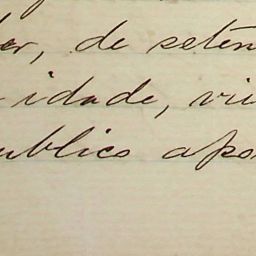 der, de setem
idade, viu
ublico apo